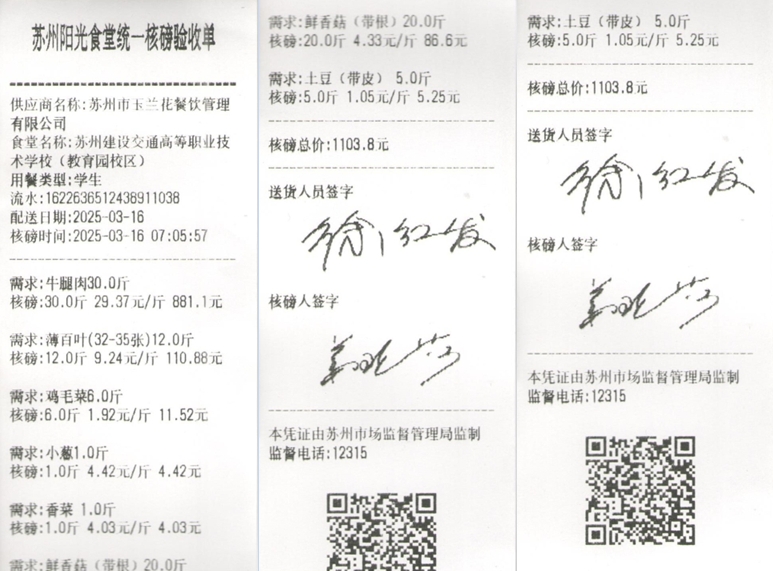 苏州阳光食堂统一核磅验收单
供应商名称:苏州市玉兰花餐饮管理
有限公司
食堂名称:苏州建设交通高等职业技
术学校（教育园校区）
用餐类型:学生
流水:1622636512438911038
配送日期:2025-03-16
核磅时间:2025-03-16 07:05:57
需求:牛腿肉30.0斤
核磅:30.0斤 29.37元/斤 881.1元
需求:薄百叶(32-35张)12.0斤
核磅:12.0斤 9.24元/斤 110.88元
需求:鸡毛菜6.0斤
核磅:6.0斤 1.92元/斤 11.52元
需求:小葱1.0斤
核磅:1.0斤 4.42元/斤 4.42元
需求:香菜 1.0斤
核磅:1.0斤 4.03元/斤 4.03元
需求:鲜香菇（带根）20.0斤
需求:鲜香菇（带根）20.0斤
核磅:20.0斤 4.33元/斤 86.6元
需求:土豆（带皮） 5.0斤
核磅:5.0斤 1.05元/斤 5.25元
核磅总价:1103.8元
送货人员签字
核磅人签字
本凭证由苏州市场监督管理局监制
监督电话:12315
需求:土豆（带皮） 5.0斤
核磅:5.0斤 1.05元/斤 5.25元
核磅总价:1103.8元
送货人员签字
核磅人签字
本凭证由苏州市场监督管理局监制
监督电话:12315